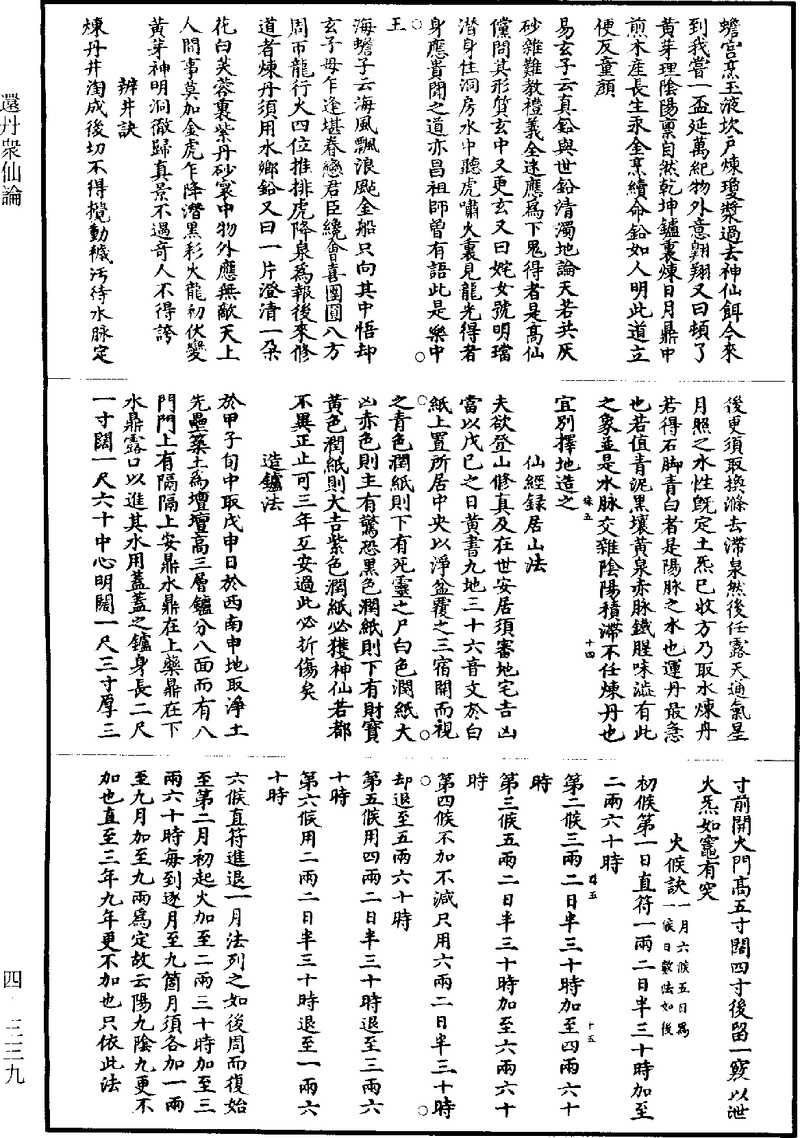 蟾宮烹玉液坎戶煉瓊漿過去神仙餌今來
到我嘗一盃延萬紀物外意翱翔又曰頓了
黃芽理陰陽稟自然乾坤鑪裏煉日月鼎中
煎木產長生汞金烹續命鉛如人明此道立
便反童顏
易玄子云真鉛與世鉛清濁地論天若共灰
砂雜難教禮義全遠應為下鬼得者是高仙
儻問其形質玄中又更玄又曰姹女號明璫
潛身住洞房水中聽虎嘯火裏見龍光得者
身應貴聞之道亦昌祖師曾有語此是藥中
王
海蟾子云海風飄浪颭金船只向其中悟却
玄子母乍逢堪眷戀君臣纔會喜團圓八方
周帀龍行火四位推排虎降泉為報後來修
道者煉丹須用水鄉鉛又曰一片澄清一朶
花白芙蓉裏紫丹砂寰中物外應無敵天上
人間事莫加金虎乍降潛黑彩火龍初伏變
黃芽神明洞徹歸真景不遇奇人不得誇
辨井訣
煉丹井淘成後切不得攪動穢汚待水脉定
後更須取換滌去滯泉然後任露天通氣星
月照之水性旣定土炁已收方乃取水煉丹
若得石脚青白者是陽脉之水也運丹最急
也若值青泥黑壤黃泉赤脉鐵腥味澁有此
之象並是水脉交雜陰陽積滯不任煉丹也
宜別擇地造之
仙經錄居山法
夫欲登山修真及在世安居須審地宅吉凶
當以戊巳之日黃書九地三十六音文於白
紙上置所居中央以淨盆覆之三宿開而視
之青色潤紙則下有死靈之尸白色潤紙大
凶赤色則主有驚恐黑色潤紙則下有財寶
黃色潤紙則大吉紫色潤紙必獲神仙若都
不異正止可三年互安過此必折傷矣
造鑪法
於甲子旬中取戊申日於西南申地取淨土
先壘築土為壇壇高三層鑪分八面而有八
門門上有隔隔上安鼎水鼎在上藥鼎在下
水鼎露口以進其水用蓋蓋之鑪身長二尺
一寸闊一尺六十中心明闊一尺三寸厚三
寸前開火門高五寸闊四寸後留一竅以泄
火炁如竈有突
火候訣一月六候五日為一候日數法如後
初候第一日直符一兩二日半三十時加至
二兩六十時
第二候三兩二日半三十時加至四兩六十
時
第三候五兩二日半三十時加至六兩六十
時
第四候不加不減只用六兩二日半三十時
却退至五兩六十時
第五候用四兩二日半三十時退至三兩六
十時
第六候用二兩二日半三十時退至一兩六
十時
六候直符進退一月法列之如後周而復始
至第二月初起火加至二兩三十時加至三
兩六十時每到逐月至九箇月須各加一兩
至九月加至九兩為定故云陽九陰九更不
加也直至三年九年更不加也只依此法
還丹眾仙論
四
三三九